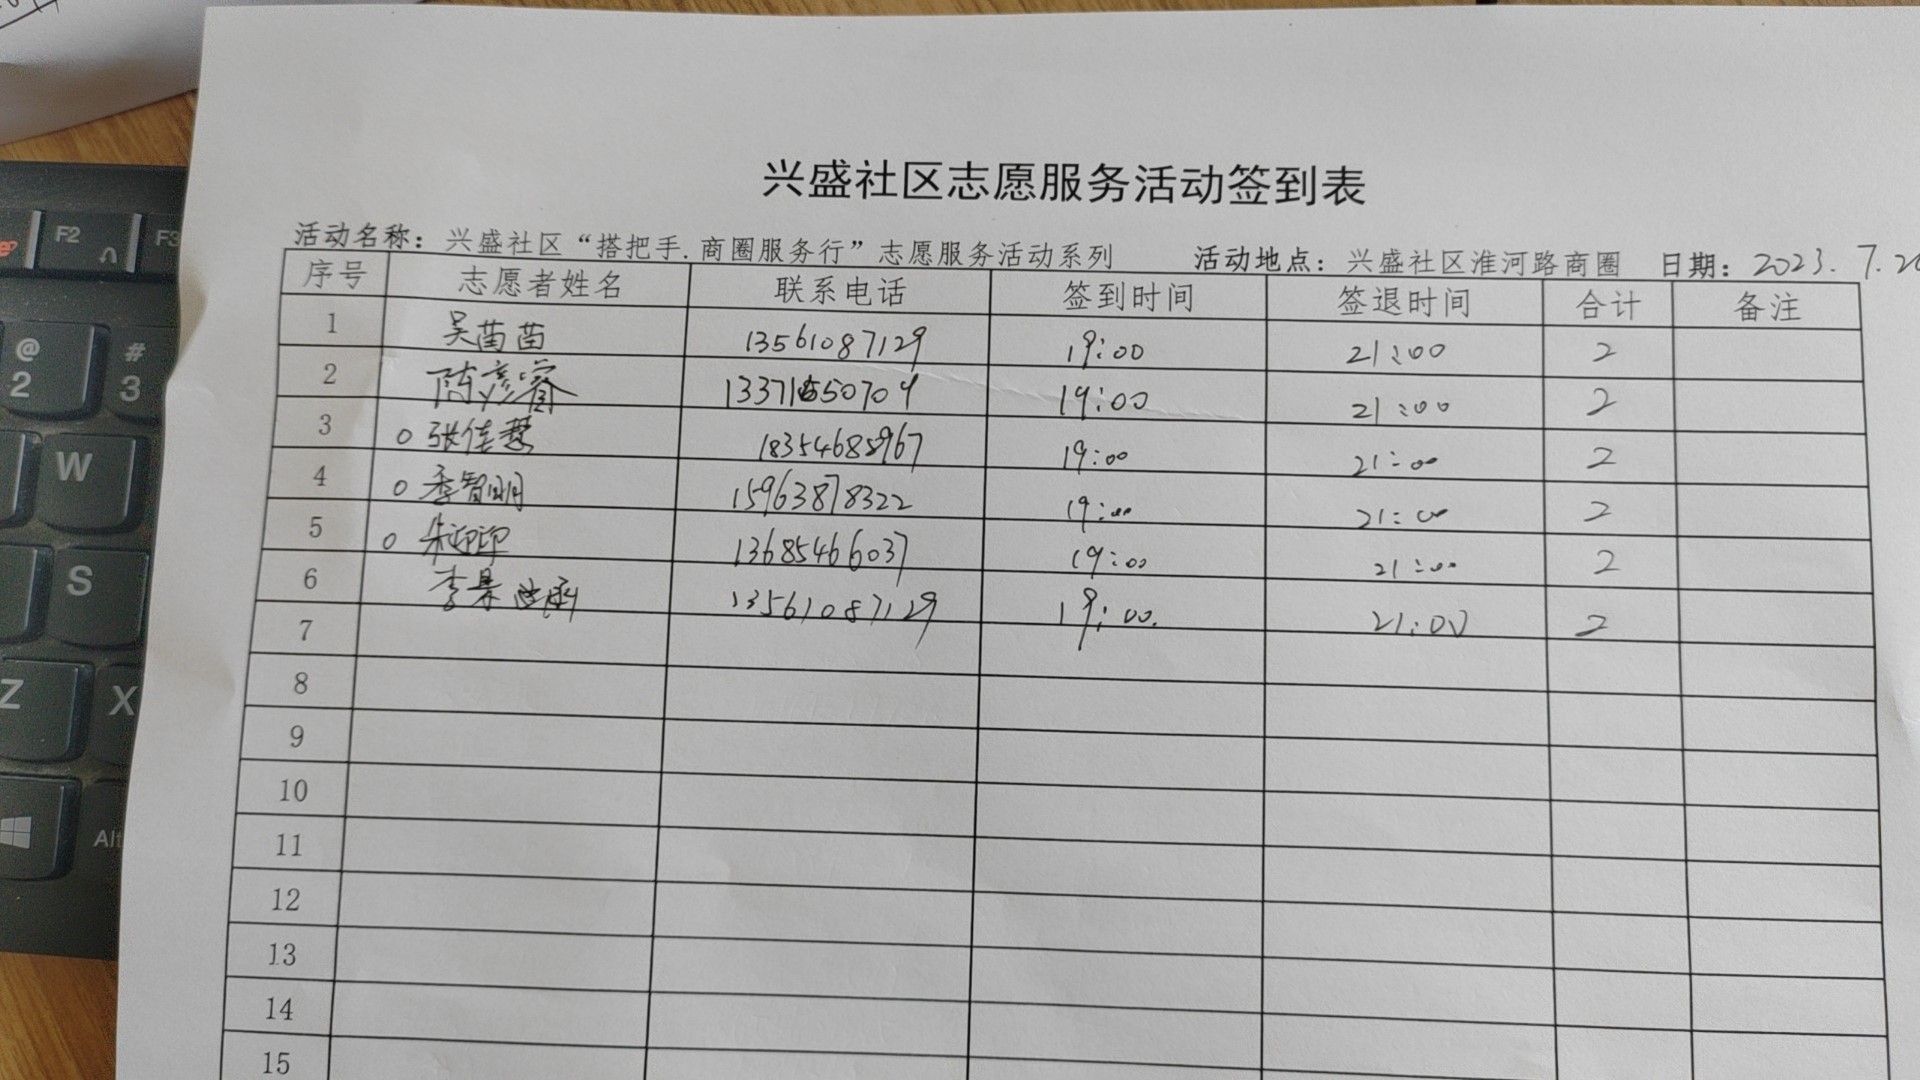 兴盛社区志愿服务活动签到表
活动名称：兴盛社区“搭把手.商圈服务行”志愿服务活动系列 活动地点：兴盛社区淮河路商圈 日期：2023.7.20
序号 志愿者姓名 联系电话 签到时间 签退时间 合计 备注
1 吴苗苗 13561087129 19:00 21:00 2
2 陈彦睿 13371550709 19:00 21:00 2
3 张佳慧 18354685967 19:00 21:00 2
4 季智明 15963878322 19:00 21:00 2
5 朱迎迎 13685466037 19:00 21:00 2
6 李杲 13561087129 19:00. 21:00 2
7
8
9
10
11
12
13
14
15
F2
F3
@
2
#
3
W
S
Z
X
Alt